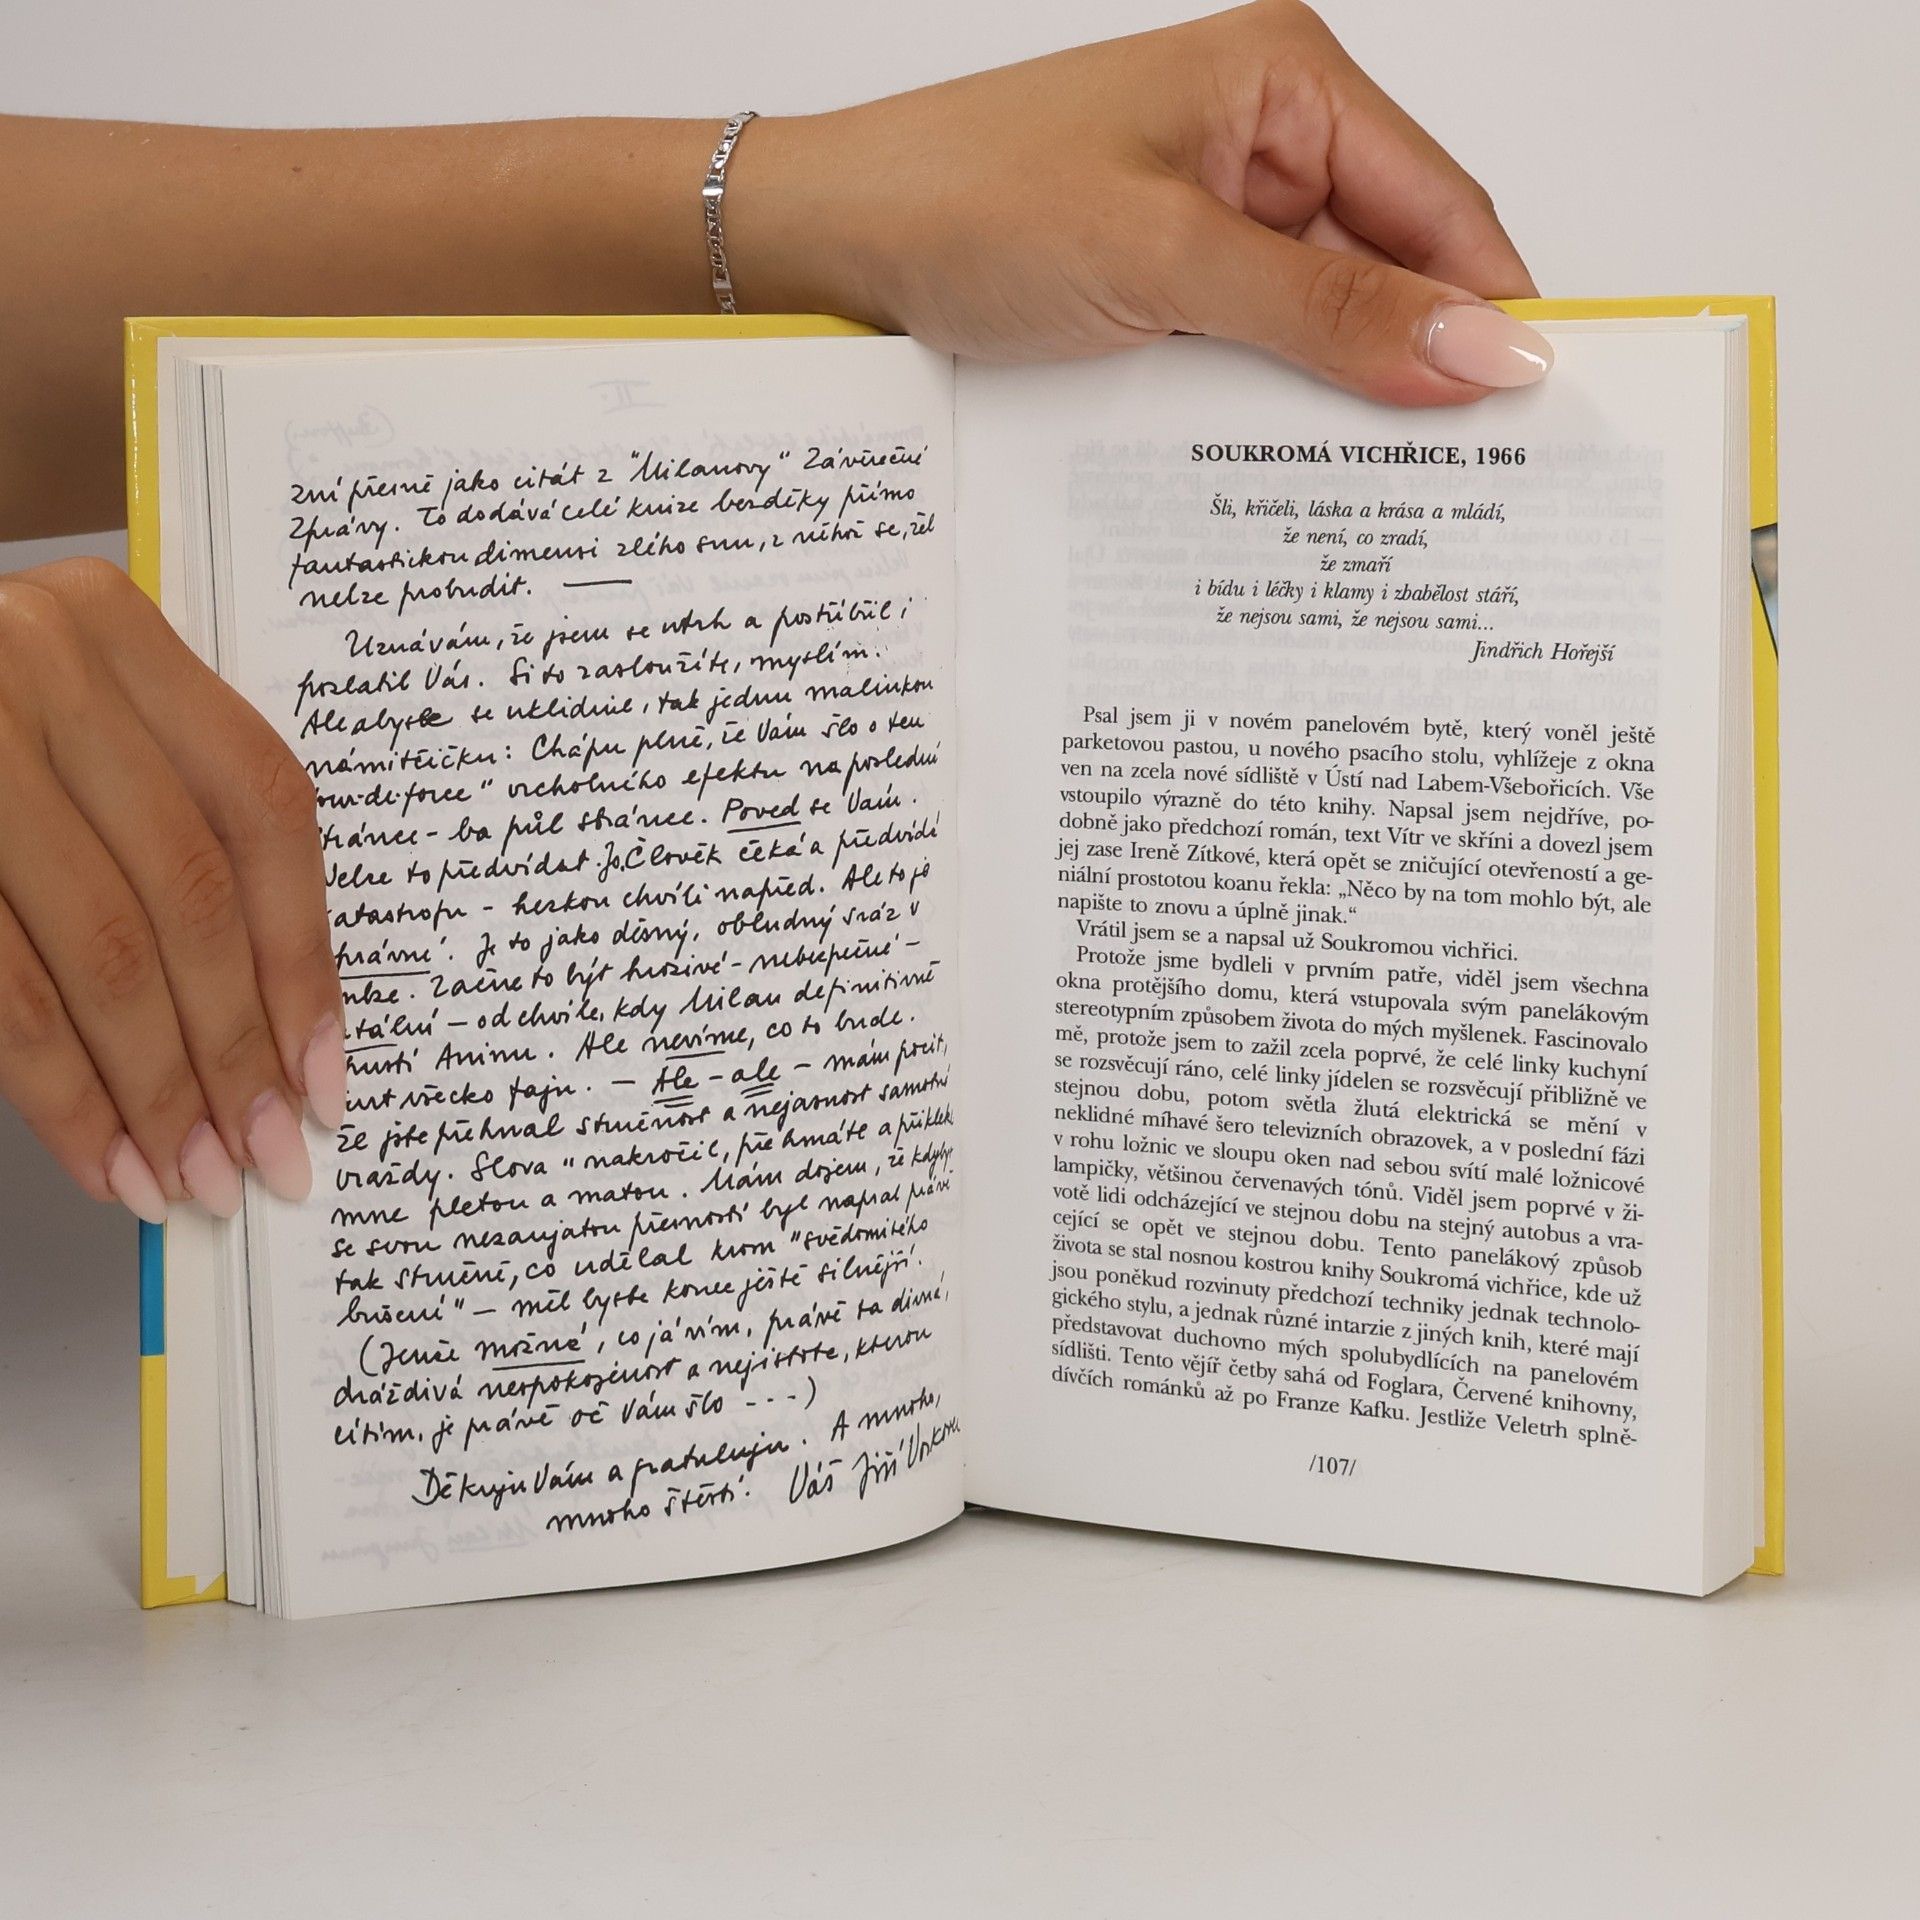 zní přesně jako citát z "Milanovy" Závěrečné
Zprávy. To dodává celé knize bezděky přímo
fantastickou dimensi zlého snu, z něhož se, žel
nelze probudit. —
Uznávám, že jsem se utrh a postříbřil i
pozlatil Vás. Si to zasloužíte, myslím.
Ale abyste se uklidnil, tak jednu malinkou
námitčičku: Chápu plně, že Vám šlo o ten
"tour-de-force" vrcholného efektu na poslední
stránce - ba půl stránce. Poved se Vám.
Nelze to předvídat. Jo, Člověk čeká a předvídá
katastrofu - hezkou chvíli napřed. Ale to je
správné. Je to jako děsný, obludný sráz v
mlze. Začne to být hrozivé - nebezpečné -
fatální - od chvíle, kdy Milan definitivně
opustí Aninu. Ale nevíme, co to bude.
všecko taju. - Ale - ale - mám pocit,
že jste přehnal stručnost a nejasnost samotné
vraždy. Slova "nakročil, přehmáte a přiklek
mne pletou a matou. Mám dojem, že kdyby
se svou nezaujatou přesností byl napsal právě
tak stručně, co udělal krom "svědomitého
bušení" - měl byste konec ještě silnější.
(Jenže možná, co já vím, právě ta divná,
dráždivá nespokojenost a nejistota, kterou
cítím, je právě oč Vám šlo ---)
Děkuju Vám a gratuluju. A mnoho,
mnoho štěstí. Váš Jiří
SOUKROMÁ VICHŘICE, 1966
Šli, křičeli, láska a krása a mládí,
že není, co zradí,
že zmaří
i bídu i léčky i klamy i zbabělost stáří,
že nejsou sami, že nejsou sami...
Jindřich Hořejší
Psal jsem ji v novém panelovém bytě, který voněl ještě
parketovou pastou, u nového psacího stolu, vyhlížeje z okna
ven na zcela nové sídliště v Ústí nad Labem-Všebořicích. Vše
vstoupilo výrazně do této knihy. Napsal jsem nejdříve, po-
dobně jako předchozí román, text Vítr ve skříni a dovezl jsem
jej zase Ireně Zítkové, která opět se zničující otevřeností a ge-
niální prostotou koanu řekla: „Něco by na tom mohlo být, ale
napište to znovu a úplně jinak.“
Vrátil jsem se a napsal už Soukromou vichřici.
Protože jsme bydleli v prvním patře, viděl jsem všechna
okna protějšího domu, která vstupovala svým panelákovým
stereotypním způsobem života do mých myšlenek. Fascinovalo
mě, protože jsem to zažil zcela poprvé, že celé linky kuchyní
se rozsvěcují ráno, celé linky jídelen se rozsvěcují přibližně ve
stejnou dobu, potom světla žlutá elektrická se mění v
neklidné míhavé šero televizních obrazovek, a v poslední fázi
v rohu ložnic ve sloupu oken nad sebou svítí malé ložnicové
lampičky, většinou červenavých tónů. Viděl jsem poprvé v ži-
votě lidi odcházející ve stejnou dobu na stejný autobus a vra-
cející se opět ve stejnou dobu. Tento panelákový způsob
života se stal nosnou kostrou knihy Soukromá vichřice, kde už
jsou poněkud rozvinuty předchozí techniky jednak technolo-
gického stylu, a jednak různé intarzie z jiných knih, které mají
představovat duchovno mých spolubydlících na panelovém
sídlišti. Tento vějíř četby sahá od Foglara, Červené knihovny,
dívčích románků až po Franze Kafku. Jestliže Veletrh splně-
/107/